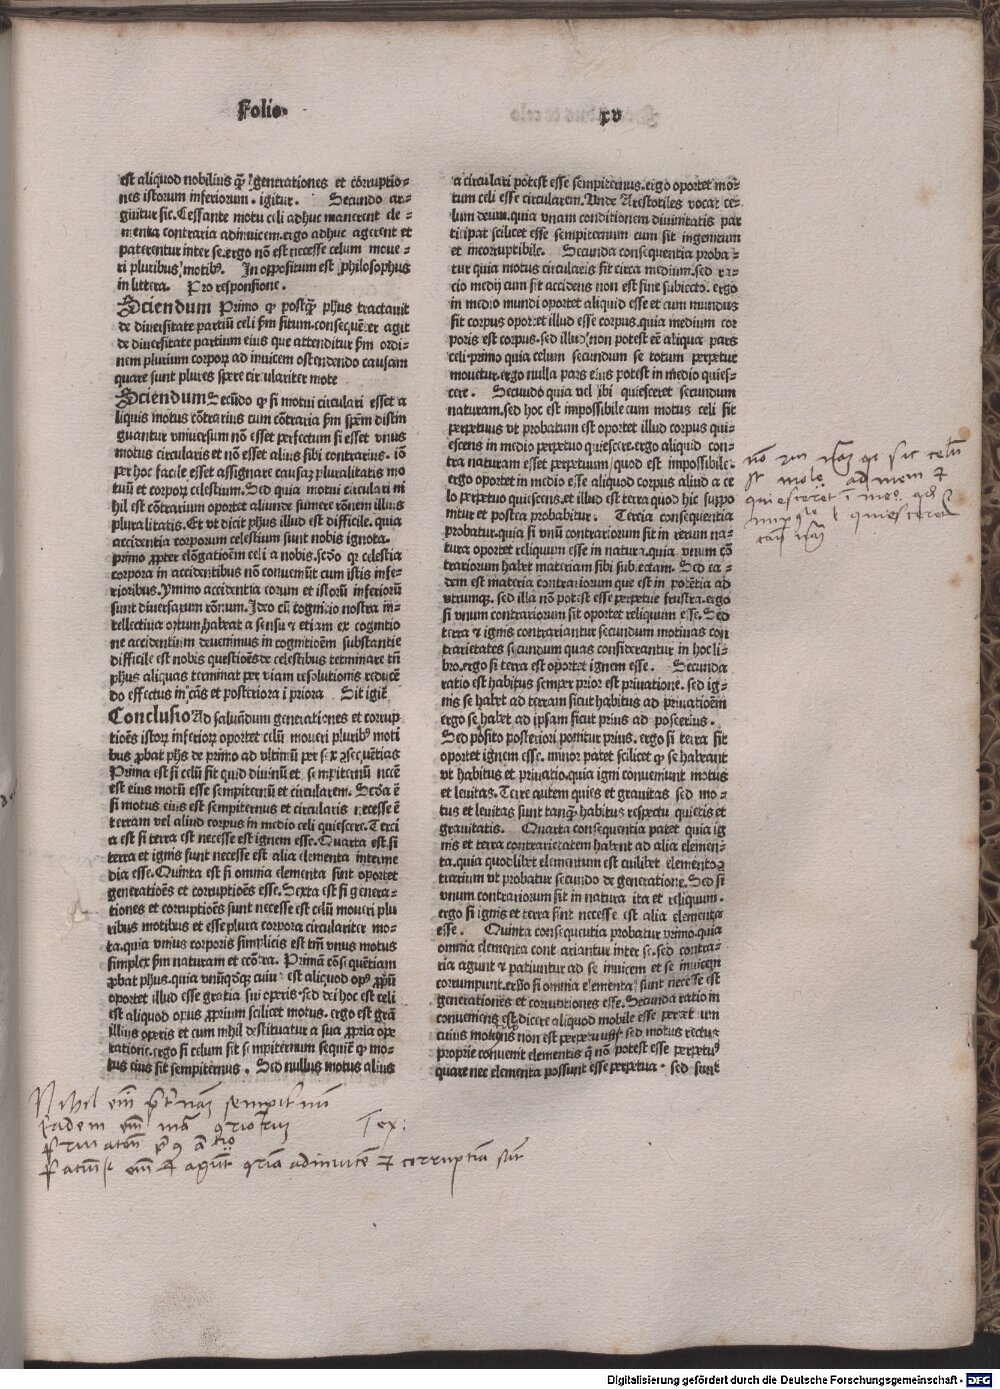 Folio.
xv
est aliquod nobilius qȝ generationes et corruptio-
nes istorum inferiorum. igitur. Secundo ar-
guitur sic. Cessante motu celi adhuc manerent ele-
menta contraria adinuicem. ergo adhuc agerent et
paterentur inter se. ergo nō est necesse celum moue-
ri pluribus motibꝰ. In oppositum est philosophus
in littera. Pro responsione.
Sciendum Primo ꝙ postqȝ phus tractauit
de diuersitate partiū celi ẜm situm. consequēter agit
de diuersitate partium eius que attenditur ẜm ordi-
nem plurium corpoꝝ ad inuicem ostendendo causam
quare sunt plures spere circulariter mote
Sciendum Secūdo ꝙ si motui circulari esset a
liquis motus cōtrarius cum cōtraria ẜm spēm distin
guantur vniuersum nō esset perfectum si esset vnus
motus circularis et nō esset alius sibi contrarius. iō
per hoc facile esset assignare causaȝ pluralitatis mo
tuū et corpoꝝ celestium. Sed quia motui circulari ni
hil est cōtrarium oportet aliunde sumere rōnem illius
pluralitatis. Et vt dicit phus illud est difficile. quia
accidentia corporum celestium sunt nobis ignota.
primo ꝓpter elōgatioēm celi a nobis. scđo qꝛ celestia
corpora in accidentibus nō conueniūt cum istis infe-
rioribus. Ymmo accidentia eorum et istorū inferiorū
sunt diuersarum rōnum. Ideo cū cognitio nostra in-
tellectiua ortum habeat a sensu ⁊ etiam ex cognitio
ne accidentium deuenimus in cognitioēm substantie
difficile est nobis questioēs de celestibus terminare tn̄
phus aliquas terminat per viam resolutionis reducē
do effectus in cās et posteriora ī priora Sit igit̄
Conclusio Ad saluandum generationes et corrup
tioēs istoꝝ inferioꝝ oportet celū moueri pluribꝰ moti
bus ꝓbat phs de primo ad vltimū per sex ꝯsequētias
Prima est si celū sit quid diuinū et sempiternū necē
est eius motū esse sempiternū et circularem. Scđa ē
si motus eius est sempiternus et circularis necesse ē
terram vel aliud corpus in medio celi quiescere. Terci
a est si terra est necesse est ignem esse. Quarta est si
terra et ignis sunt necesse est alia elementa interme
dia esse. Quinta est si omnia elementa sint oportet
generatioēs et corruptioēs esse. Sexta est si genera-
tiones et corruptioēs sunt necesse est celū moueri plu
ribus motibus et esse plura corpora circulariter mo-
ta. quia vnius corporis simplicis est tm̄ vnus motus
simplex ẜm naturam et ecōtra. Primā cōsequētiam
ꝓbat phus. quia vnūqđqȝ cuius est aliquod opꝰ ꝓpriū
oportet illud esse gratia sui operis. sed dei hoc est celi
est aliquod opus ꝓprium scilicet motus. ergo est grā
illius operis et cum nihil destituatur a sua ꝓpria ope
ratione. ergo si celum sit sempiternum sequit̄ ꝙ mo-
tus eius sit sempiternus. Sed nullus motus alius
a circulari potest esse sempiternus. ergo oportet mo-
tum celi esse circularem. Vnde Arestotiles vocat ce-
lum deum. quia vnam conditionem diuinitatis par
ticipat scilicet esse sempiternum cum sit ingenitum
et incorruptibile. Secunda consequentia proba-
tur quia motus circularis fit circa medium. sed ra-
cio medij cum sit accidens non est sine subiecto. ergo
in medio mundi oportet aliquid esse et cum mundus
sit corpus oportet illud esse corpus. quia medium cor
poris est corpus. sed illud non potest eē aliqua pars
celi. primo quia celum secundum se totum perpetue
mouetur. ergo nulla pars eius potest in medio quies-
cere. Secundo quia vel ibi quiesceret secundum
naturam. sed hoc est impossibile cum motus celi sit
perpetuus vt probatum est oportet illud corpus qui-
escens in medio perpetuo quiescere. ergo aliquid con-
tra naturam esset perpetuum quod est impossibile.
ergo oportet in medio esse aliquod corpus aliud a ce
lo perpetuo quiescens. et illud est terra quod hic suppo
nitur et postea probabitur. Tercia consequentia
probatur. quia si vnū contrariorum sit in rerum na-
tura oportet reliquum esse in natura. quia vnum cō
trariorum habet materiam sibi subiectam. Sed ea-
dem est materia contrariorum que est in potētia ad
vtrumqȝ. sed illa nō potest esse perpetue frustra. ergo
si vnum contrariorum sit oportet reliquum esse. Sed
terra ⁊ ignis contrariantur secundum motiuas con
trarietates secundum quas considerantur in hoc li-
bro. ergo si terra est oportet ignem esse. Secunda
ratio est habitus semper prior est priuatione. sed ig-
nis se habet ad terram sicut habitus ad priuatioēm
ergo se habet ad ipsam sicut prius ad posterius.
Sed posito posteriori ponitur prius. ergo si terra sit
oportet ignem esse. minor patet scilicet ꝙ se habeant
vt habitus et priuatio. quia igni conueniunt motus
et leuitas. Terre autem quies et grauitas sed mo-
tus et leuitas sunt tanqȝ habitus respectu quietis et
grauitatis. Quarta consequentia patet quia ig
nis et terra contrarietatem habent ad alia elemen-
ta. quia quodlibet elementum est cuilibet elemento cō
trarium vt probatur secundo de generatione. Sed si
vnum contrariorum sit in natura ita et reliquum.
ergo si ignis et terra sint necesse est alia elementa
esse. Quinta consequentia probatur primo. quia
omnia elementa contrariantur inter se. sed contra-
ria agunt ⁊ patiuntur ad se inuicem et se inuicem
corrumpunt. ergo si omnia elementa sunt necesse est
generationes et corruptiones esse. Secunda ratio in
conueniens est dicere aliquod mobile esse perpetuum
cuius motus non est perpetuus sed motus rectus
proprie conuenit elementis q̄ nō potest esse perpetuꝰ
quare nec elementa possunt esse perpetua. sed sunt
quiesceret
Nihil
Tex:
adinuicē ⁊ corruptiā sūt
Digitalisierung gefördert durch die Deutsche Forschungsgemeinschaft - DFG